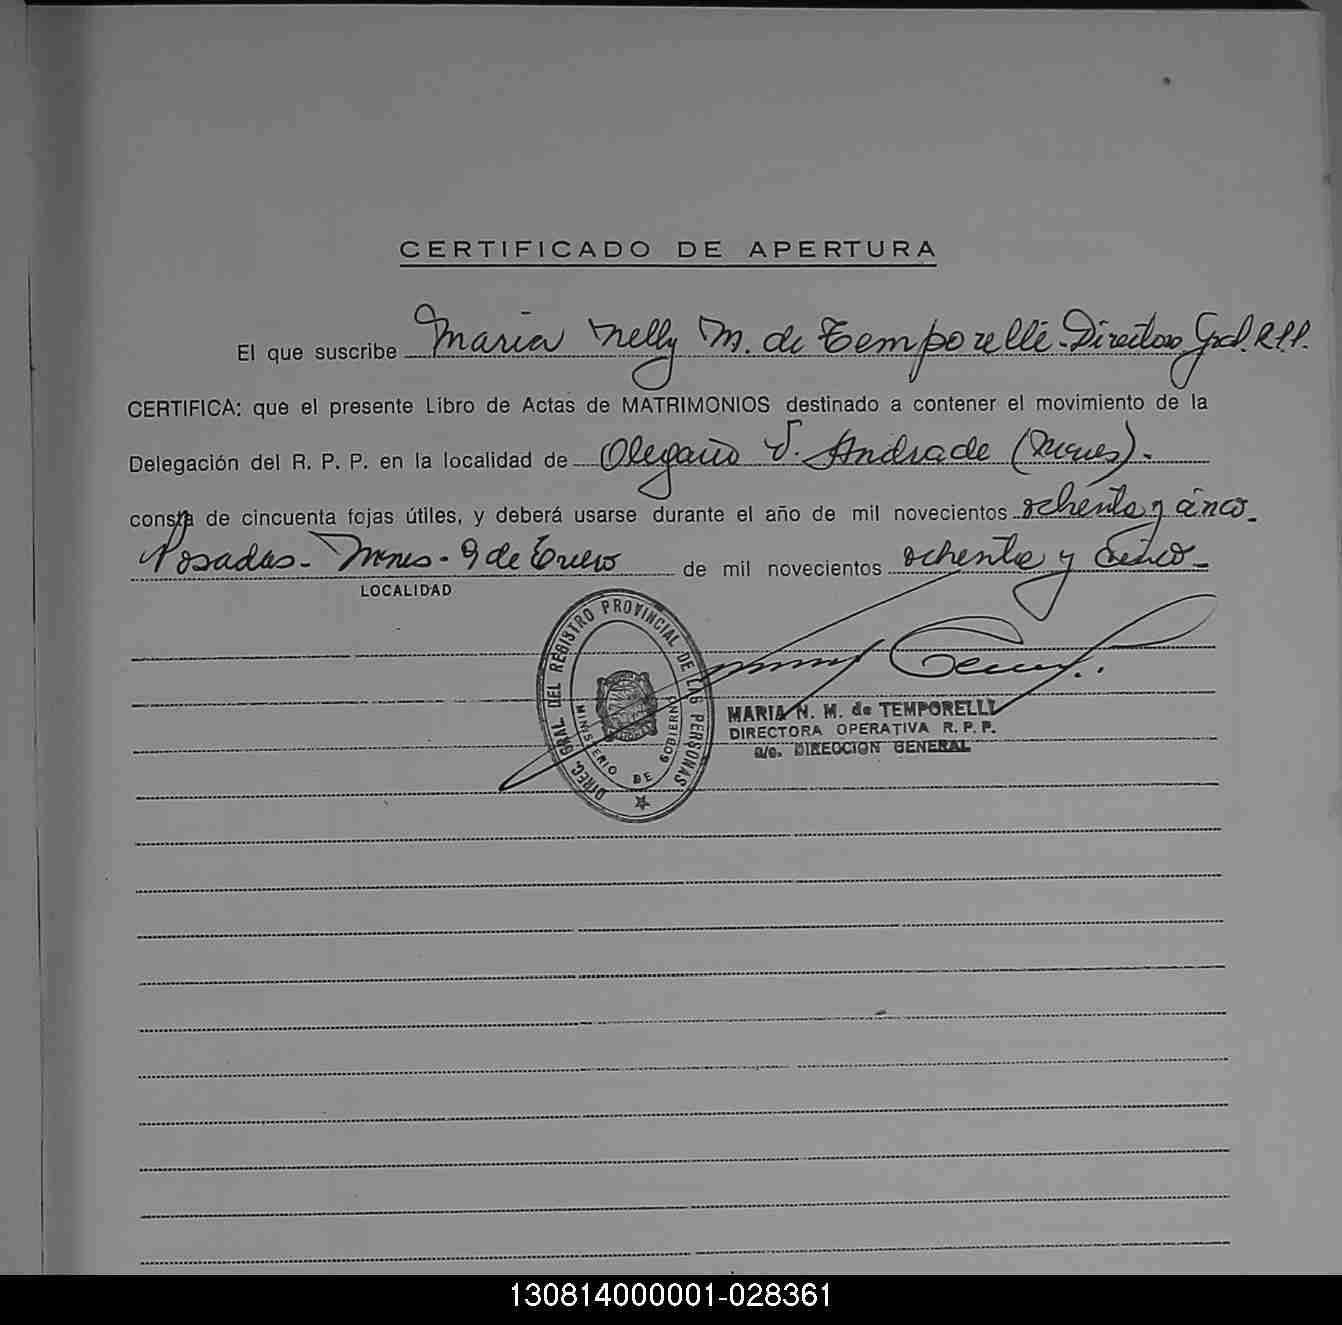 CERTIFICADO DE APERTURA
El que suscribe Maria Nelly M. de Temporelli - Directora Gral. R.P.P.
CERTIFICA: que el presente Libro de Actas de MATRIMONIOS destinado a contener el movimiento de la
Delegación del R. P. P. en la localidad de Olegario V. Andrade (Mnes).-
consta de cincuenta fojas útiles, y deberá usarse durante el año de mil novecientos ochenta y cinco.
Posadas - Mnes - 9 de Enero de mil novecientos ochenta y cinco -
LOCALIDAD
DIREC. GRAL. DEL REGISTRO PROVINCIAL DE LAS PERSONAS
MINISTERIO DE GOBIERNO
MARIA N. M. de TEMPORELLI
DIRECTORA OPERATIVA R. P. P.
a/c. DIRECCION GENERAL
130814000001-028361